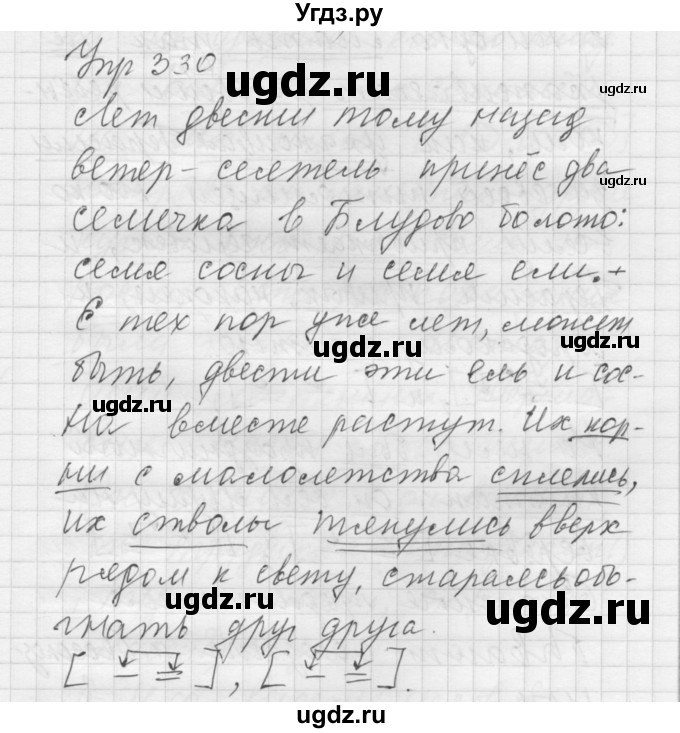 Угдз.ру
Упр 330
ugdz.ru
Лет двести тому назад
ugdz.ru
ветер-сеятель принёс два
ugdz.ru
семечка в Блудово болото:
семя сосны и семя ели.+
С тех пор уже лет, может
ugdz.ru
быть, двести эти ель и сос-
ugdz.ru
на вместе растут. Их кор-
ни с малолетства сплелись,
их стволы тянулись вверх
рядом к свету, стараясь обо-
ugdz.ru
ugdz.ru
гнать друг друга.
[ – = ], [ – = ].
ugdz.ru
ugdz.ru